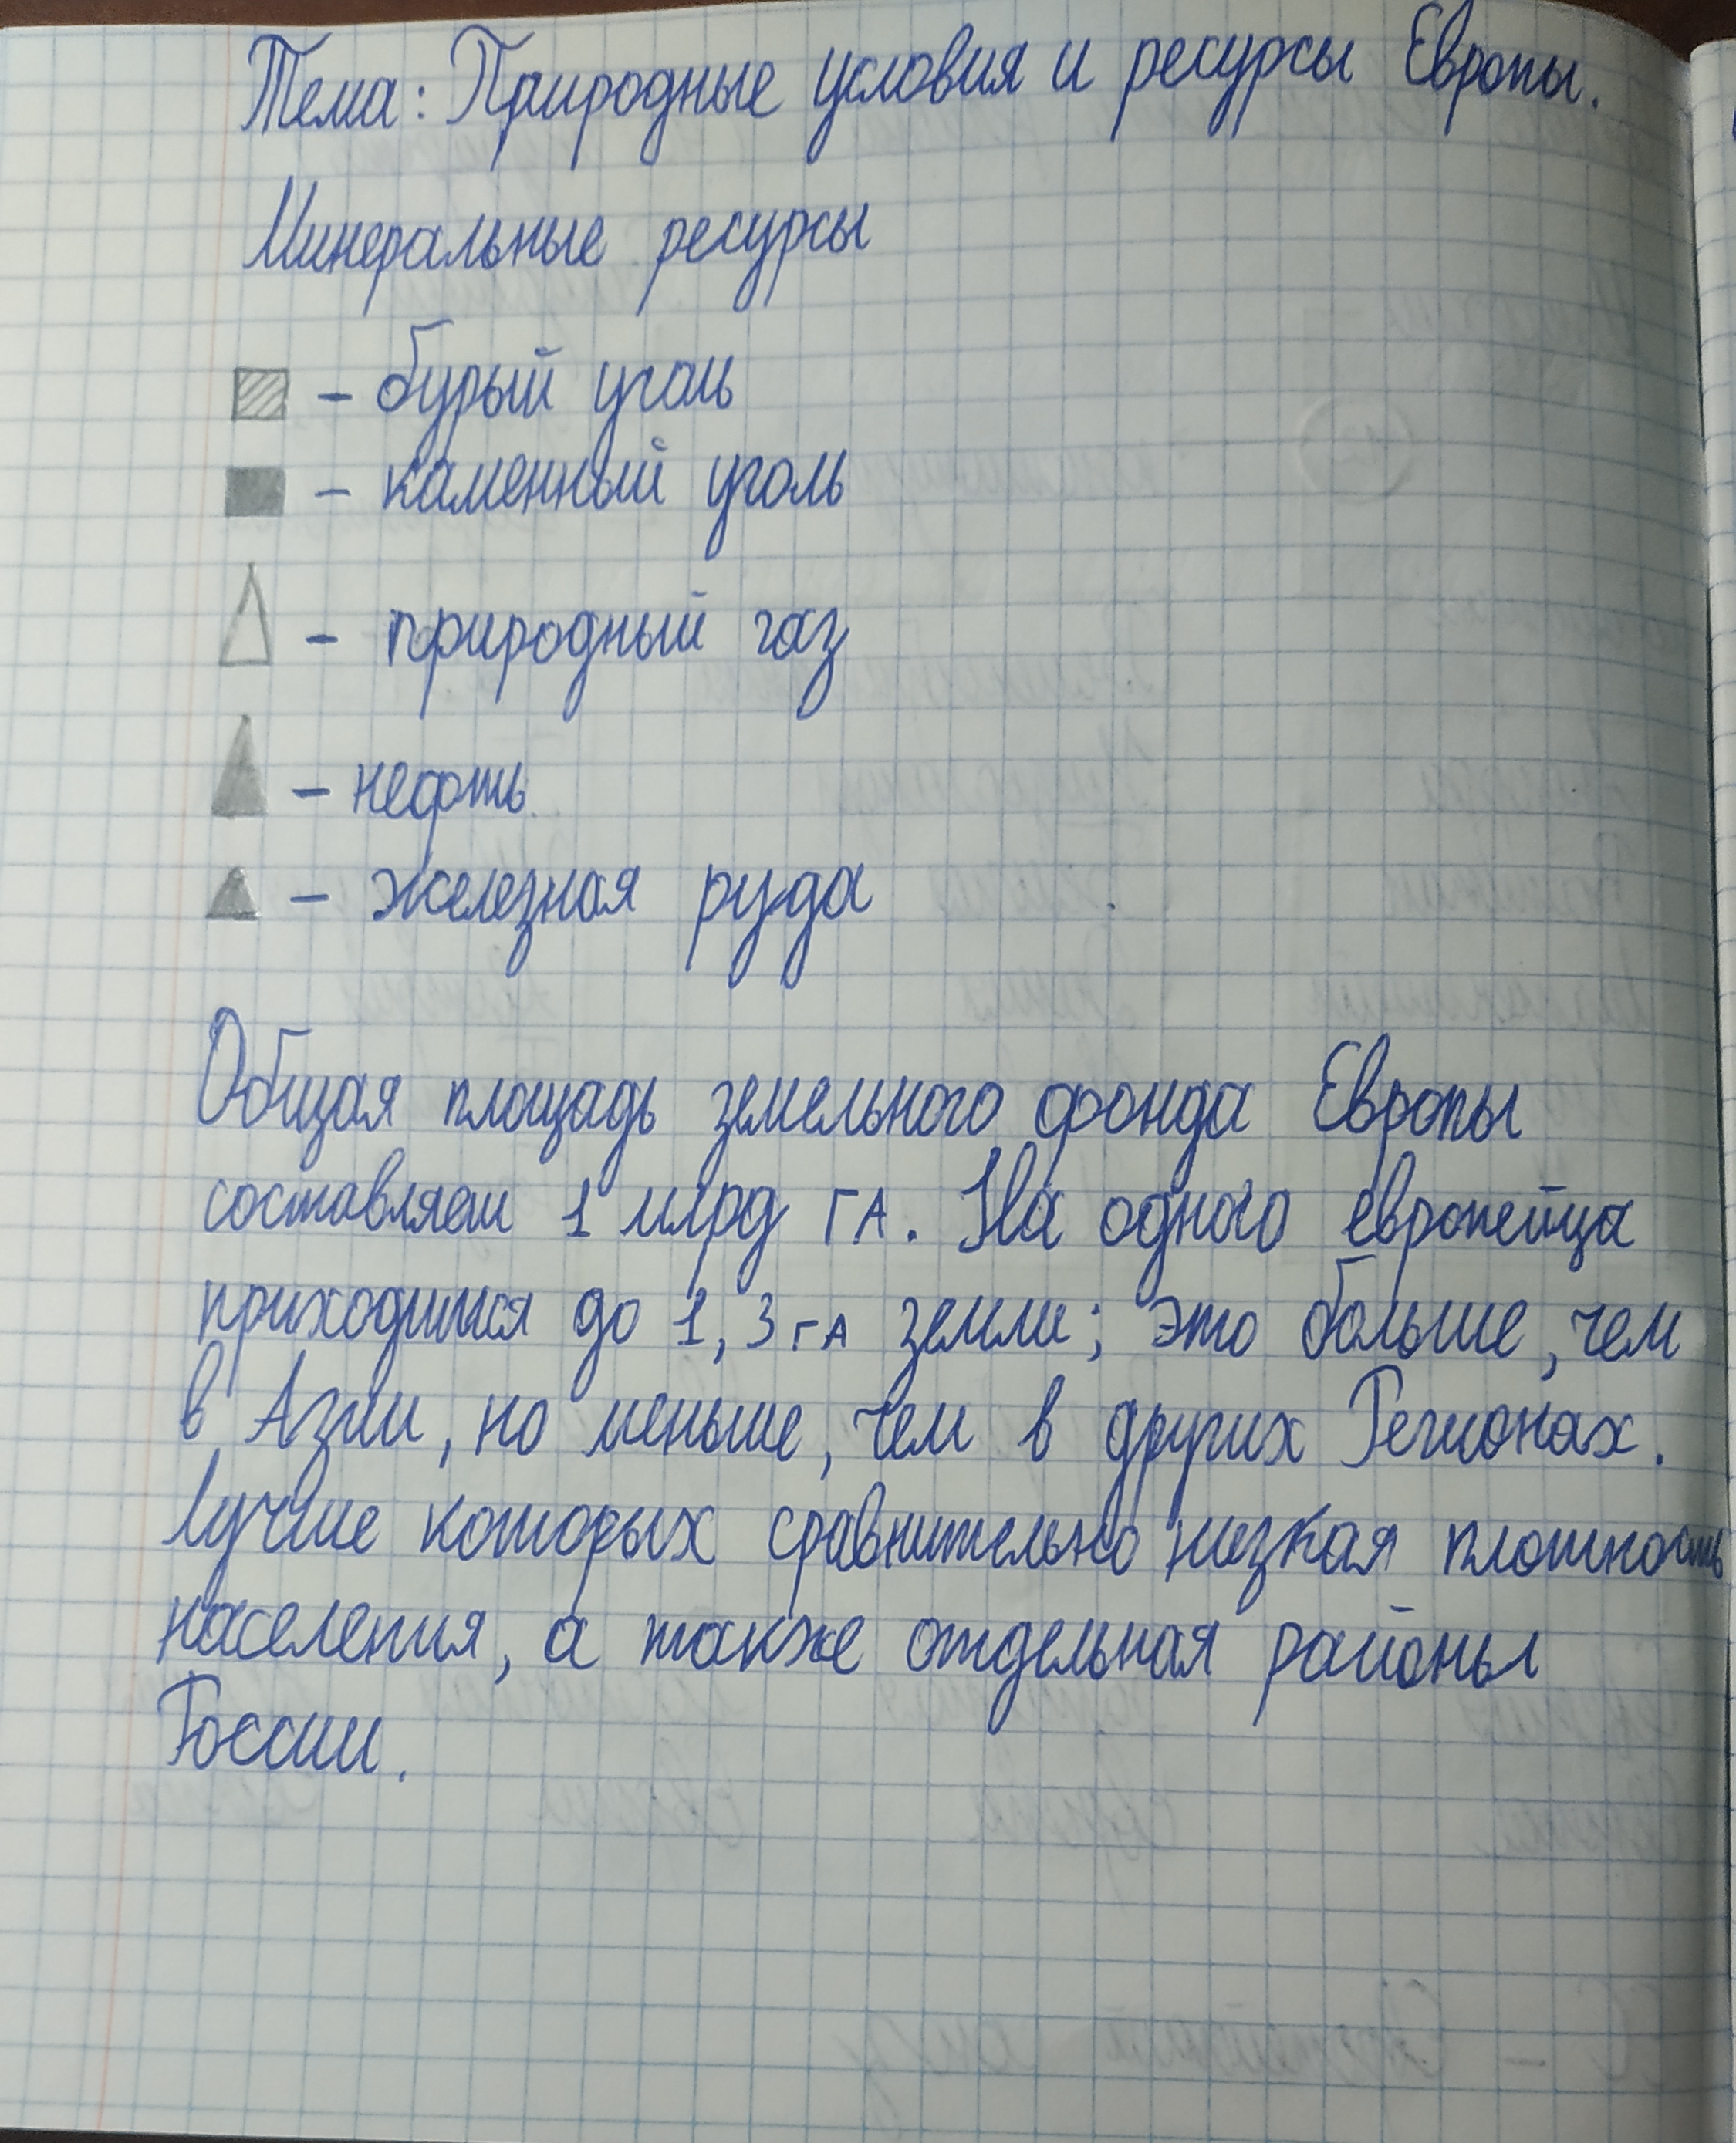 Тема: Природные условия и ресурсы Европы.
Минеральные ресурсы
– бурый уголь
– каменный уголь
– природный газ
– нефть
– железная руда
Общая площадь земельного фонда Европы
составляет 1 млрд ГА. На одного европейца
приходится до 1,3 га земли; это больше, чем
в Азии, но меньше, чем в других Регионах.
Лучше которых сравнительно низкая плотность
населения, а также отдельная районы
России.